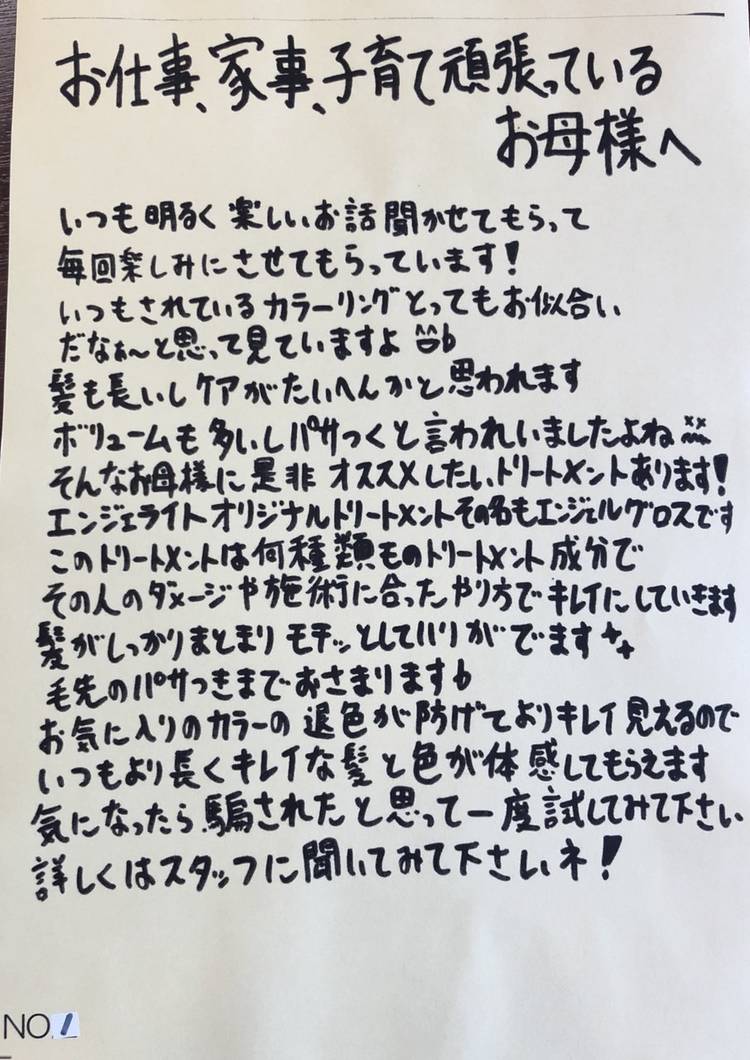 お仕事、家事、子育て頑張っている
お母様へ
いつも明るく楽しいお話聞かせてもらって
毎回楽しみにさせてもらっています!
いつもされているカラーリングとってもお似合い
だなぁ〜と思って見ていますよ
髪も長いしケアがたいへんかと思われます
ボリュームも多いしパサつくと言われいましたよね
そんなお母様に是非オススメしたいトリートメントあります!
エンジェライトオリジナルトリートメントその名もエンジェルグロスです
このトリートメントは何種類ものトリートメント成分で
その人のダメージや施術に合ったやり方でキレイにしていきます
髪がしっかりまとまりモチッとしてハリがでます
毛先のパサつきまでおさまります♪
お気に入りのカラーの退色が防げてよりキレイ見えるので
いつもより長くキレイな髪と色が体感してもらえます
気になったら騙されたと思って一度試してみて下さい
詳しくはスタッフに聞いてみて下さいネ!
NO.1